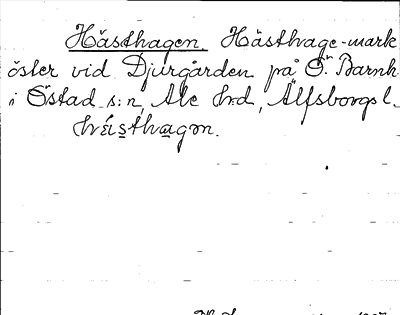 Hästhagen. Hästhage-mark
öster vid Djurgården på Ö:n Barnh
i Östad s:n, Ale hd, Älfsborgs l.